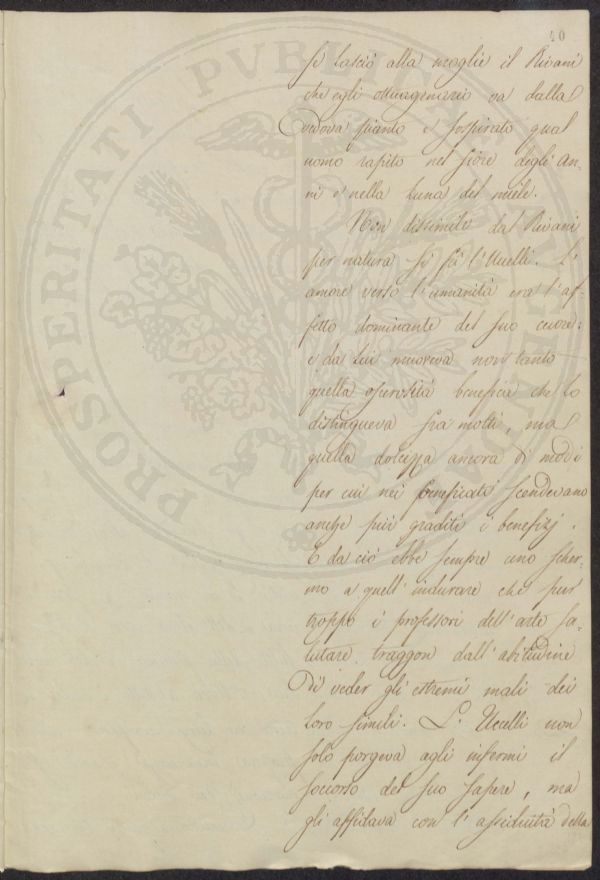 40
si lasciò alla moglie il Rivani
che egli ottuagenario va dalla
vedova pianto e sospirato qual
uomo rapito nel fiore degli an-
ni e nella luna del miele.
Non dissimile dal Rivani
per natura si fù l'Uccelli. L'
amore verso l'umanità era l'af-
fetto dominante del suo cuore:
e da lui moveva non tanto
quella operosità benefica che lo
distingueva fra molti, ma
quella dolcezza ancora di modi
per cui nei beneficati scendevano
anche più graditi i benefizj.
E da ciò ebbe sempre uno scher-
mo a quell'indurare che pur
troppo i professori dell'arte sa-
lutare traggon dall'abitudine
di veder gli estremi mali dei
loro simili. L'Uccelli non
solo porgeva agli infermi il
soccorso del suo sapere, ma
gli affidava con l'assiduità della
PROSPERITATI PUBLICAE